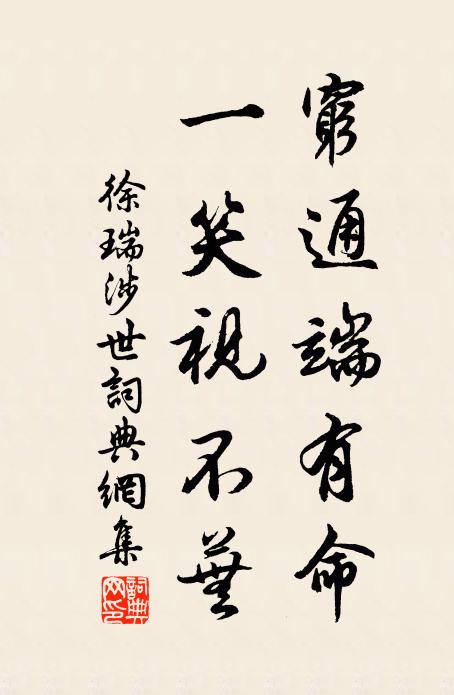 窮通端有命
一笑視不蕪
徐瑞涉世詞典網集
詞典网印